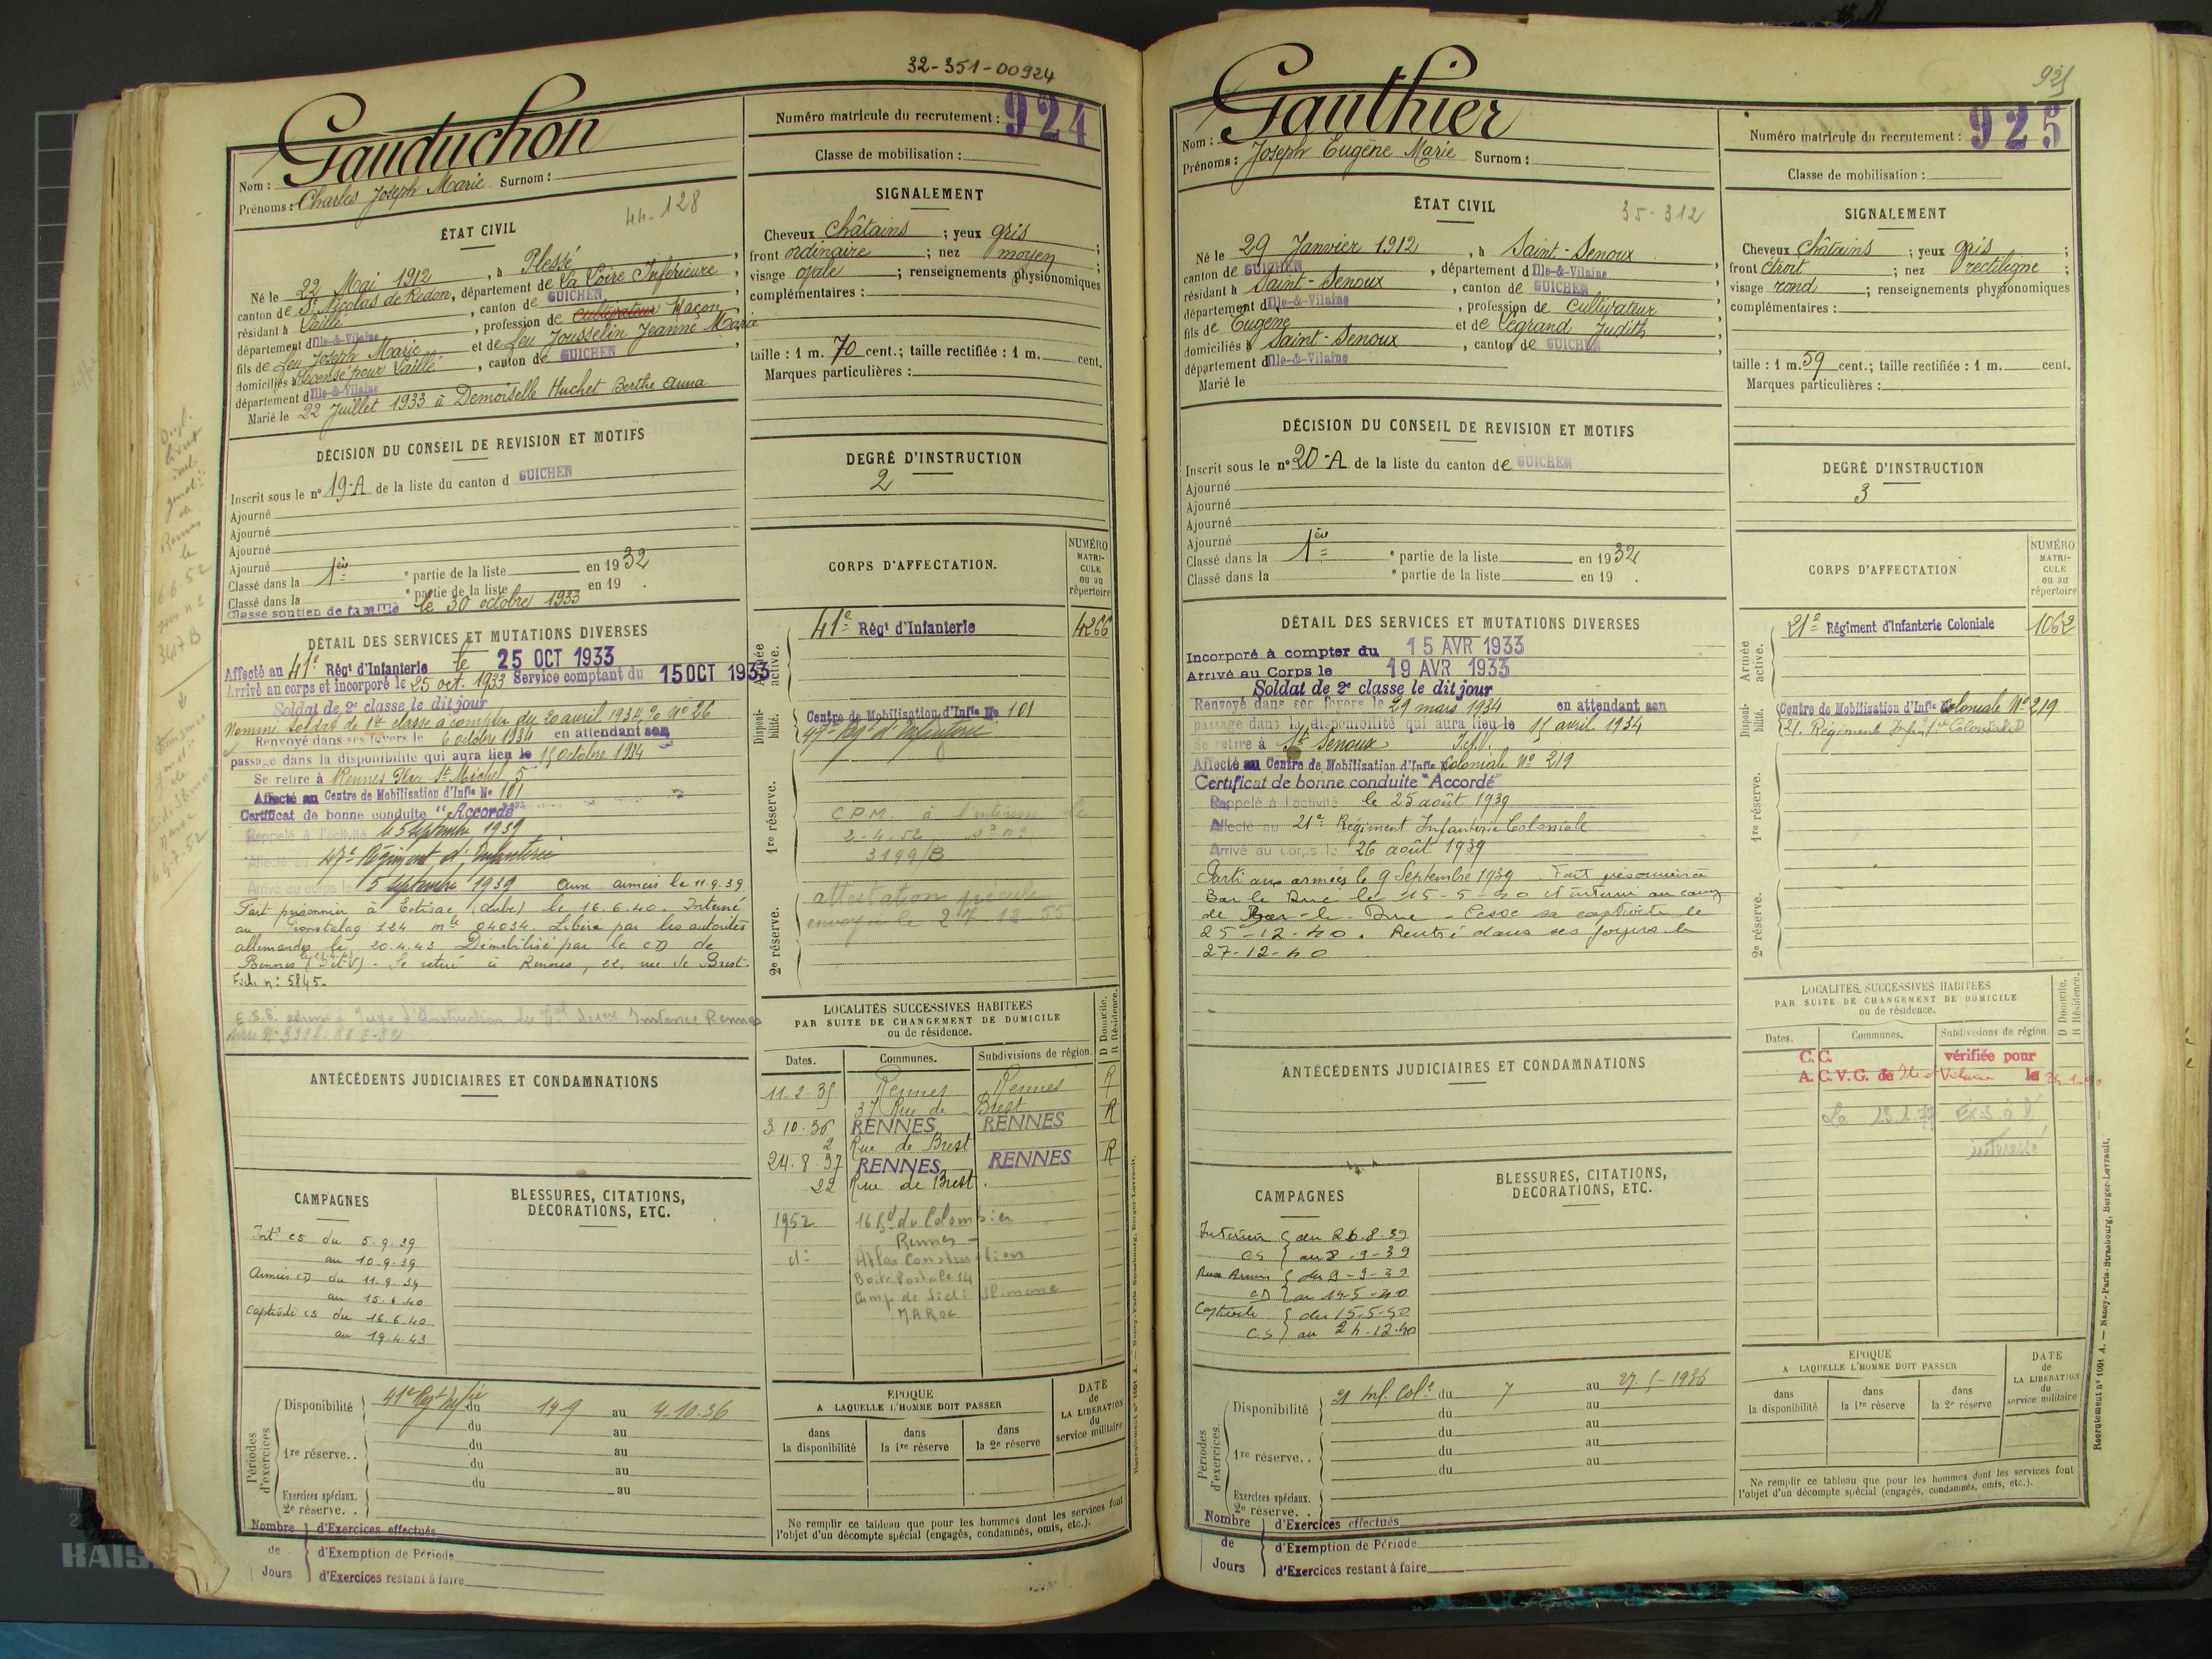 32-351-00924
Gauduchon
Nom :
Prénoms : Charles Joseph Marie Surnom :
Numéro matricule du recrutement : 924
Classe de mobilisation :
ÉTAT CIVIL
44-128
Né le 22 Mai 1912, à Plessé,
canton de St Nicolas de Redon, département de La Loire Inférieure,
résidant à Laillé, canton de GUICHEN,
département d'Ille-&-Vilaine, profession de cultivateur Maçon,
fils de feu Joseph Marie et de feu Jousselin Jeanne Marie
domiciliés à Recensé pour Laillé, canton de GUICHEN,
département d'Ille-&-Vilaine
Marié le 22 Juillet 1933 à Demoiselle Huchet Berthe Anna
SIGNALEMENT
Cheveux châtains ; yeux gris ;
front ordinaire ; nez moyen ;
visage ovale ; renseignements physionomiques
complémentaires :
taille : 1 m. 70 cent.; taille rectifiée : 1 m. cent.
Marques particulières :
DÉCISION DU CONSEIL DE REVISION ET MOTIFS
Inscrit sous le n° 19-A de la liste du canton d GUICHEN
Ajourné
Ajourné
Ajourné
Ajourné
Classé dans la 1ère e partie de la liste en 1932
Classé dans la e partie de la liste en 19 .
Classé soutien de famille le 30 octobre 1933
DEGRÉ D'INSTRUCTION
2
DÉTAIL DES SERVICES ET MUTATIONS DIVERSES
Affecté au 41e Régt d'Infanterie le 25 OCT 1933
Arrivé au corps et incorporé le 25 oct. 1933 Service comptant du 15 OCT 1933
Soldat de 2e classe le dit jour
Nommé soldat de 1re classe à compter du 20 avril 1934, N° 26
Renvoyé dans ses foyers le 6 octobre 1934 en attendant son
passage dans la disponibilité qui aura lieu le 15 octobre 1934
Se retire à Rennes Place St Michel, 5
Affecté au Centre de Mobilisation d'Infie No 101
Certificat de bonne conduite "Accordé"
Rappelé à l'activité le 5 septembre 1939
Affecté au 47e Régiment d'Infanterie
Arrivé au corps le 5 septembre 1939 Aux armées le 11.9.39
Fait prisonnier à (Aube) le 16.6.40. Interné
au Fronstalag 124 mle 04034. Libéré par les autorités
allemandes le 20.4.43. Démobilisé par le CD de
Rennes (I-et-V). Se retire à Rennes, 22, rue de Brest.
Fiche n° 5845.
CORPS D'AFFECTATION.
NUMÉRO MATRICULE ou au répertoire
Armée active.
41e Régt d'Infanterie 4266
Disponibilité.
Centre de Mobilisation d'Infie No 101
47e Régt d'Infanterie
1re réserve.
C.P.M. à le
2-4-52 s/ n°
3199/B
2e réserve.
attestation
envoyée le 27 12 55
ANTÉCÉDENTS JUDICIAIRES ET CONDAMNATIONS
LOCALITÉS SUCCESSIVES HABITÉES
PAR SUITE DE CHANGEMENT DE DOMICILE
ou de résidence.
D Domicile. R Résidence.
Dates. Communes. Subdivisions de région.
11.2.35 Rennes Rennes R
37 Rue de Brest
3.10.36 RENNES RENNES R
2 Rue de Brest
24.8.37 RENNES RENNES R
22 Rue de Brest.
1952 16 Bd du Colombier
Rennes -
di Atlas Construction
Boite Postale 14
Camp de Sidi Slimane
MAROC
CAMPAGNES
Intr CS du 5.9.39
au 10.9.39
Armées CD du 11.9.39
au 15.6.40
Captivité CS du 16.6.40
au 19.4.43
BLESSURES, CITATIONS,
DÉCORATIONS, ETC.
Périodes d'exercices
Disponibilité 41e Regt Infie du 14-9 au 4.10.36
du au
1re réserve.. du au
du au
du au
Exercices spéciaux.
2e réserve. . .
Nombre de Jours
d'Exercices effectués
d'Exemption de Période
d'Exercices restant à faire
EPOQUE
A LAQUELLE L'HOMME DOIT PASSER
dans la disponibilité
dans la 1re réserve
dans la 2e réserve
DATE de LA LIBERATION du service militaire
Ne remplir ce tableau que pour les hommes dont les services font
l'objet d'un décompte spécial (engagés, condamnés, omis, etc.).
925
Gauthier
Nom :
Prénoms : Joseph Eugène Marie Surnom :
Numéro matricule du recrutement : 925
Classe de mobilisation :
ÉTAT CIVIL
35-312
Né le 29 Janvier 1912, à Saint-Senoux,
canton de GUICHEN, département d'Ille-&-Vilaine,
résidant à Saint-Senoux, canton de GUICHEN,
département d'Ille-&-Vilaine, profession de cultivateur,
fils de Eugène et de Legrand Judith,
domiciliés à Saint-Senoux, canton de GUICHEN,
département d'Ille-&-Vilaine
Marié le
SIGNALEMENT
Cheveux châtains ; yeux gris ;
front étroit ; nez rectiligne ;
visage rond ; renseignements physionomiques
complémentaires :
taille : 1 m. 59 cent.; taille rectifiée : 1 m. cent.
Marques particulières :
DÉCISION DU CONSEIL DE REVISION ET MOTIFS
Inscrit sous le n° 20-A de la liste du canton de GUICHEN
Ajourné
Ajourné
Ajourné
Ajourné
Classé dans la 1ère e partie de la liste en 1932
Classé dans la e partie de la liste en 19 .
DEGRÉ D'INSTRUCTION
3
DÉTAIL DES SERVICES ET MUTATIONS DIVERSES
Incorporé à compter du 15 AVR 1933
Arrivé au Corps le 19 AVR 1933
Soldat de 2e classe le dit jour
Renvoyé dans ses foyers le 29 mars 1934 en attendant son
passage dans la disponibilité qui aura lieu le 15 avril 1934
Se retire à St Senoux I.et.V.
Affecté au Centre de Mobilisation d'Infie Coloniale No 219
Certificat de bonne conduite "Accordé"
Rappelé à l'activité le 25 août 1939
Affecté au 21e Régiment Infanterie Coloniale
Arrivé au corps le 26 août 1939
Parti aux armées le 9 Septembre 1939. Fait prisonnier à
Bar le Duc le 15-5-40 et interné au camp
de Bar-le-Duc - Cesse sa captivité le
25-12-40. Rentré dans ses foyers le
27-12-40
CORPS D'AFFECTATION
NUMÉRO MATRICULE ou au répertoire
Armée active.
21e Régiment d'Infanterie Coloniale 1062
Disponibilité.
Centre de Mobilisation d'Infie Coloniale No 219
21. Régiment Infie Coloniale
1re réserve.
2e réserve.
ANTÉCÉDENTS JUDICIAIRES ET CONDAMNATIONS
LOCALITÉS SUCCESSIVES HABITÉES
PAR SUITE DE CHANGEMENT DE DOMICILE
ou de résidence.
D Domicile. R Résidence.
Dates. Communes. Subdivisions de région.
C. C. vérifiée pour
A. C. V. G. de Ille et Vilaine le
Le ES à l'
intéressé
CAMPAGNES
Intérieur du 26.8.39
CS au 8-9-39
Aux Armées du 9-9-39
CD au 14-5-40
Captivité du 15-5-40
CS au 24-12-40
BLESSURES, CITATIONS,
DÉCORATIONS, ETC.
Périodes d'exercices
Disponibilité 21 Inf. Cole du 7 au 27-5-1936
du au
du au
1re réserve. . du au
du au
Exercices spéciaux.
2e réserve. . .
Nombre de Jours
d'Exercices effectués
d'Exemption de Période
d'Exercices restant à faire
EPOQUE
A LAQUELLE L'HOMME DOIT PASSER
dans la disponibilité
dans la 1re réserve
dans la 2e réserve
DATE de LA LIBERATION du service militaire
Ne remplir ce tableau que pour les hommes dont les services font
l'objet d'un décompte spécial (engagés, condamnés, omis, etc.).
Recrutement n° 1001 A. — Nancy-Paris-Strasbourg, Berger-Levrault.